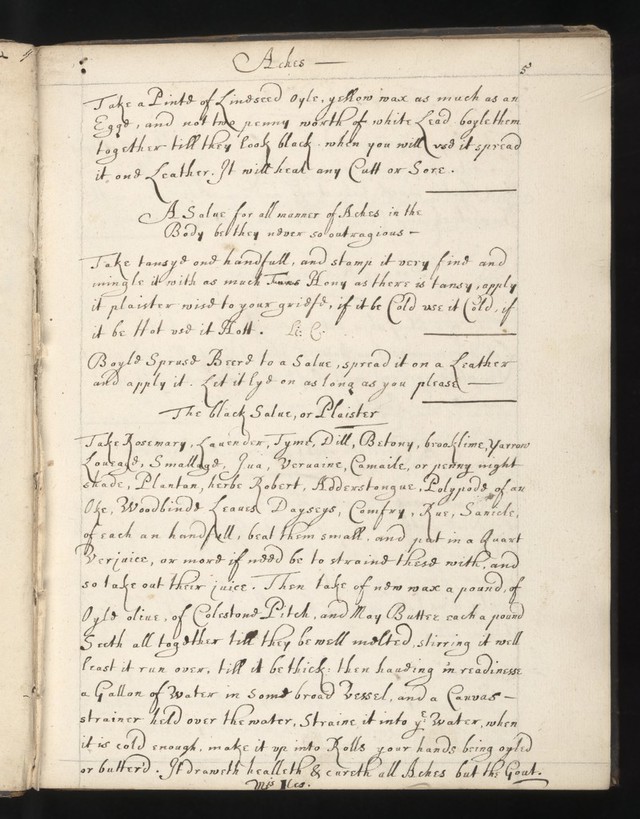 Aches — 5
Take a Pinte of Linseed Oyle, yellow wax as much as an
Egge, and not two penny worth of white Lead boyle them
together till they look black. when you will vse it spread
it one Leather. It will heal any Cutt or Sore.
A Salue for all manner of Aches in the
Body be they never so outragious —
Take tansye one handfull, and stamp it very fine and
mingle it with as much Hony as there is tansy, apply
it plaister wise to your griefe, if it be Cold vse it Cold, if
it be Hot vse it Hott. L: C:
Boyle Spruse Beere to a Salue, spread it on a Leather
and apply it. Let it lye on as long as you please —
The black Salue, or Plaister
Take Rosemary, Lauender, Tyme, Dill, Betony, brooklime, Yarrow
Loueage, Smallage, Iua, Veruaine, Camaile, or penny night
shade, Planton, herbe Robert, Adderstongue, Polypode of an
Oke, Woodbinde Leaues Dayseys, Comfry, Rue, Sanicle,
of each an handfull, beat them small, and put in a Quart
Verjuice, or more if need be to straine these with, and
so take out their juice. Then take of new wax a pound, of
Oyle oliue, of Colestone Pitch, and May Butter each a pound
Seeth all together till they be well melted, stirring it well
least it run over, till it be thick: then hauing in readinesse
a Gallon of Water in some broad Vessel, and a Canvas —
strainer held over the water, Straine it into ye Water, when
it is cold enough, make it vp into Rolls your hands being oyled
or butter'd. It draweth healleth & cureth all Aches but the Gout.
Mrs Iles.